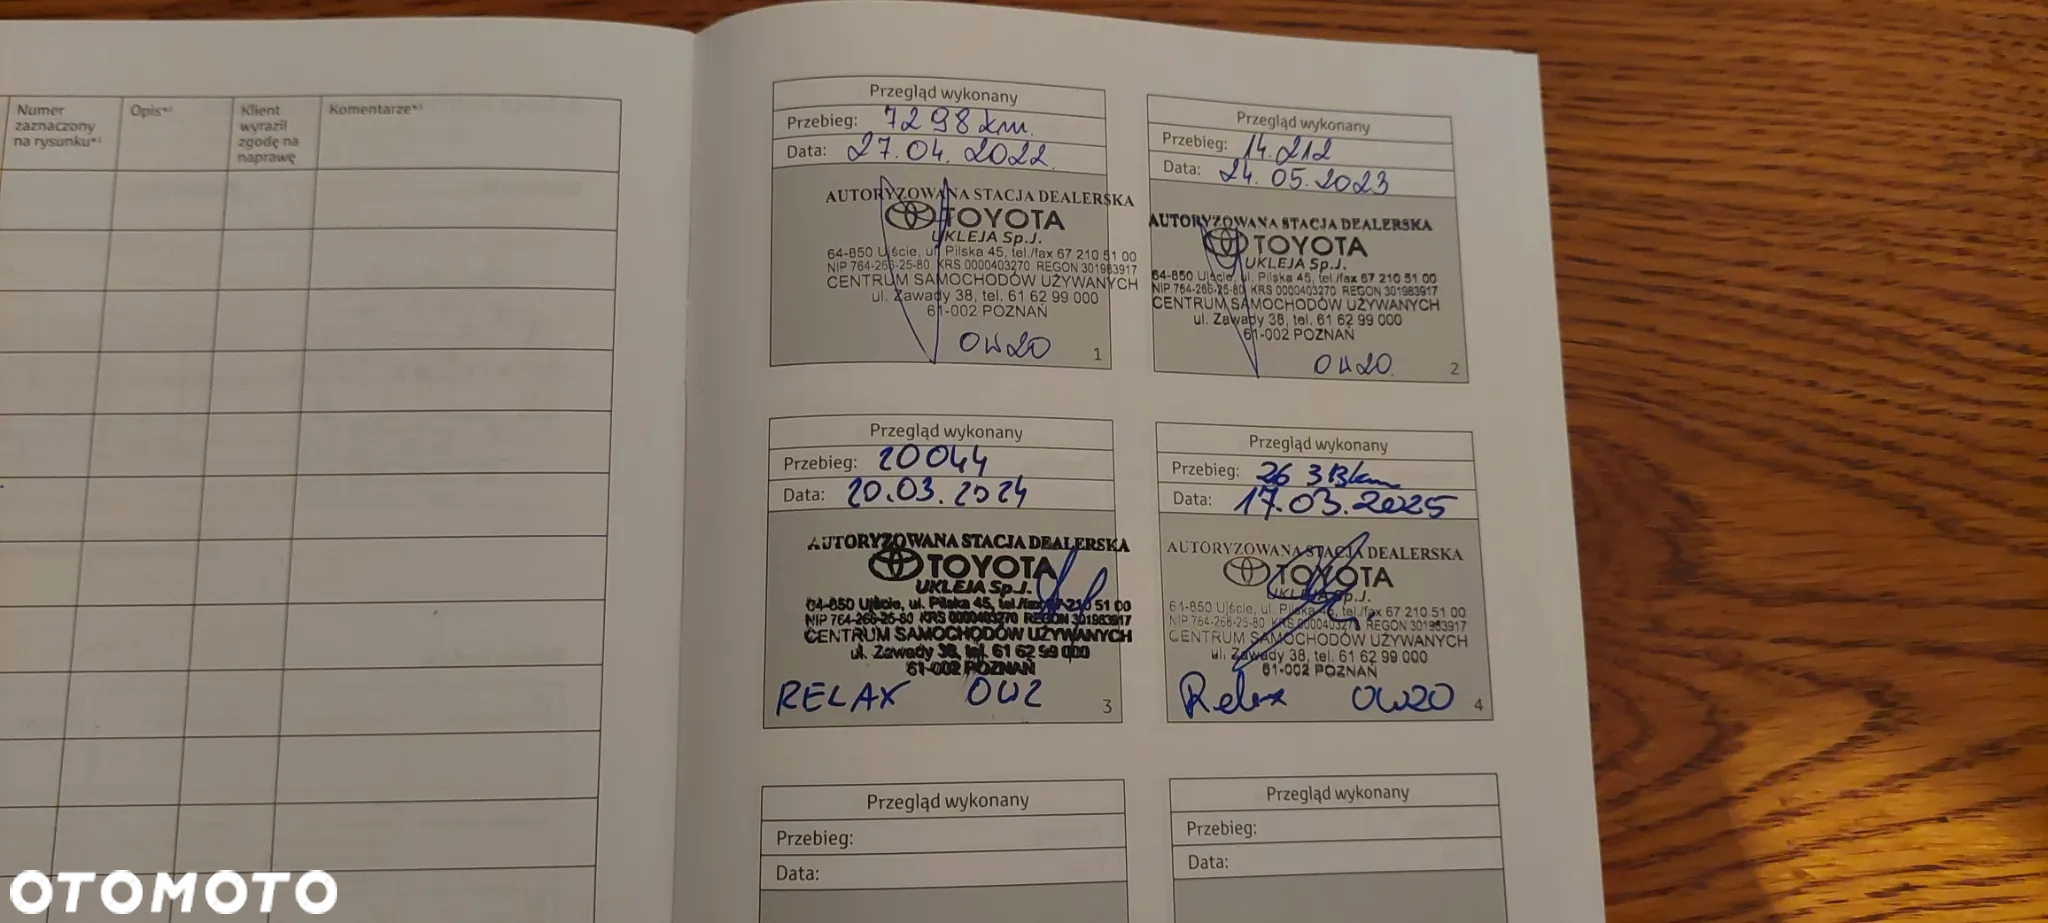 Numer
zaznaczony
na rysunku*²
Opis*²
Klient
wyraził
zgodę na
naprawę
Komentarze*³
Przegląd wykonany
Przebieg: 7298 km.
Data: 27.04.2022.
AUTORYZOWANA STACJA DEALERSKA
TOYOTA
UKLEJA Sp.J.
64-850 Ujście, ul. Pilska 45, tel./fax 67 210 51 00
NIP 764-266-25-80 KRS 0000403270 REGON 301983917
CENTRUM SAMOCHODÓW UŻYWANYCH
ul. Zawady 38, tel. 61 62 99 000
61-002 POZNAŃ
0W20
1
Przegląd wykonany
Przebieg: 14.212
Data: 24.05.2023
AUTORYZOWANA STACJA DEALERSKA
TOYOTA
UKLEJA Sp.J.
64-850 Ujście, ul. Pilska 45, tel./fax 67 210 51 00
NIP 764-266-25-80 KRS 0000403270 REGON 301983917
CENTRUM SAMOCHODÓW UŻYWANYCH
ul. Zawady 38, tel. 61 62 99 000
61-002 POZNAŃ
0W20
2
Przegląd wykonany
Przebieg: 20044
Data: 20.03.2024
AUTORYZOWANA STACJA DEALERSKA
TOYOTA
UKLEJA Sp.J.
64-850 Ujście, ul. Pilska 45, tel./fax 67 210 51 00
NIP 764-266-25-80 KRS 0000403270 REGON 301983917
CENTRUM SAMOCHODÓW UŻYWANYCH
ul. Zawady 38, tel. 61 62 99 000
61-002 POZNAŃ
RELAX 0W2
3
Przegląd wykonany
Przebieg:
Data: 17.03.2025
AUTORYZOWANA STACJA DEALERSKA
TOYOTA
UKLEJA Sp.J.
64-850 Ujście, ul. Pilska 45, tel./fax 67 210 51 00
NIP 764-266-25-80 KRS 0000403270 REGON 301983917
CENTRUM SAMOCHODÓW UŻYWANYCH
ul. Zawady 38, tel. 61 62 99 000
61-002 POZNAŃ
Relax 0W20
4
Przegląd wykonany
Przebieg:
Data:
Przegląd wykonany
Przebieg:
Data:
OTOMOTO